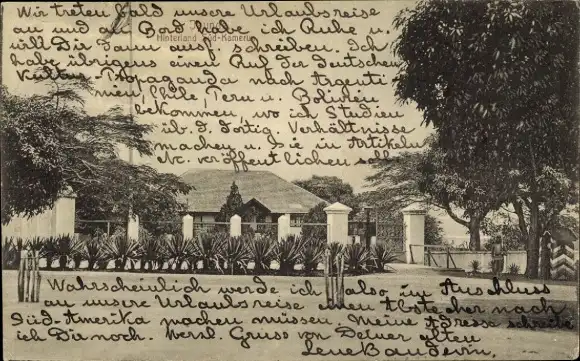 Wir treten bald unsere Urlaubsreise
an und an Bord habe ich Ruhe u.
will Dir dann ausf. schreiben. Ich
habe übrigens einen Ruf der Deutschen
Kultur-Propaganda nach Argenti-
nien, Chile, Peru u. Bolivien
bekommen, wo ich Studien
üb. d. dortig. Verhältnisse
machen u. sie in Artikeln
etc. veröffentlichen soll.
Hinterland Süd-Kamerun
Wahrscheinlich werde ich also im Anschluss
an unsere Urlaubsreise einen Abstecher nach
Süd-Amerika machen müssen. Meine Adresse schreibe
ich Dir noch. Herzl. Gruss von Deiner alten